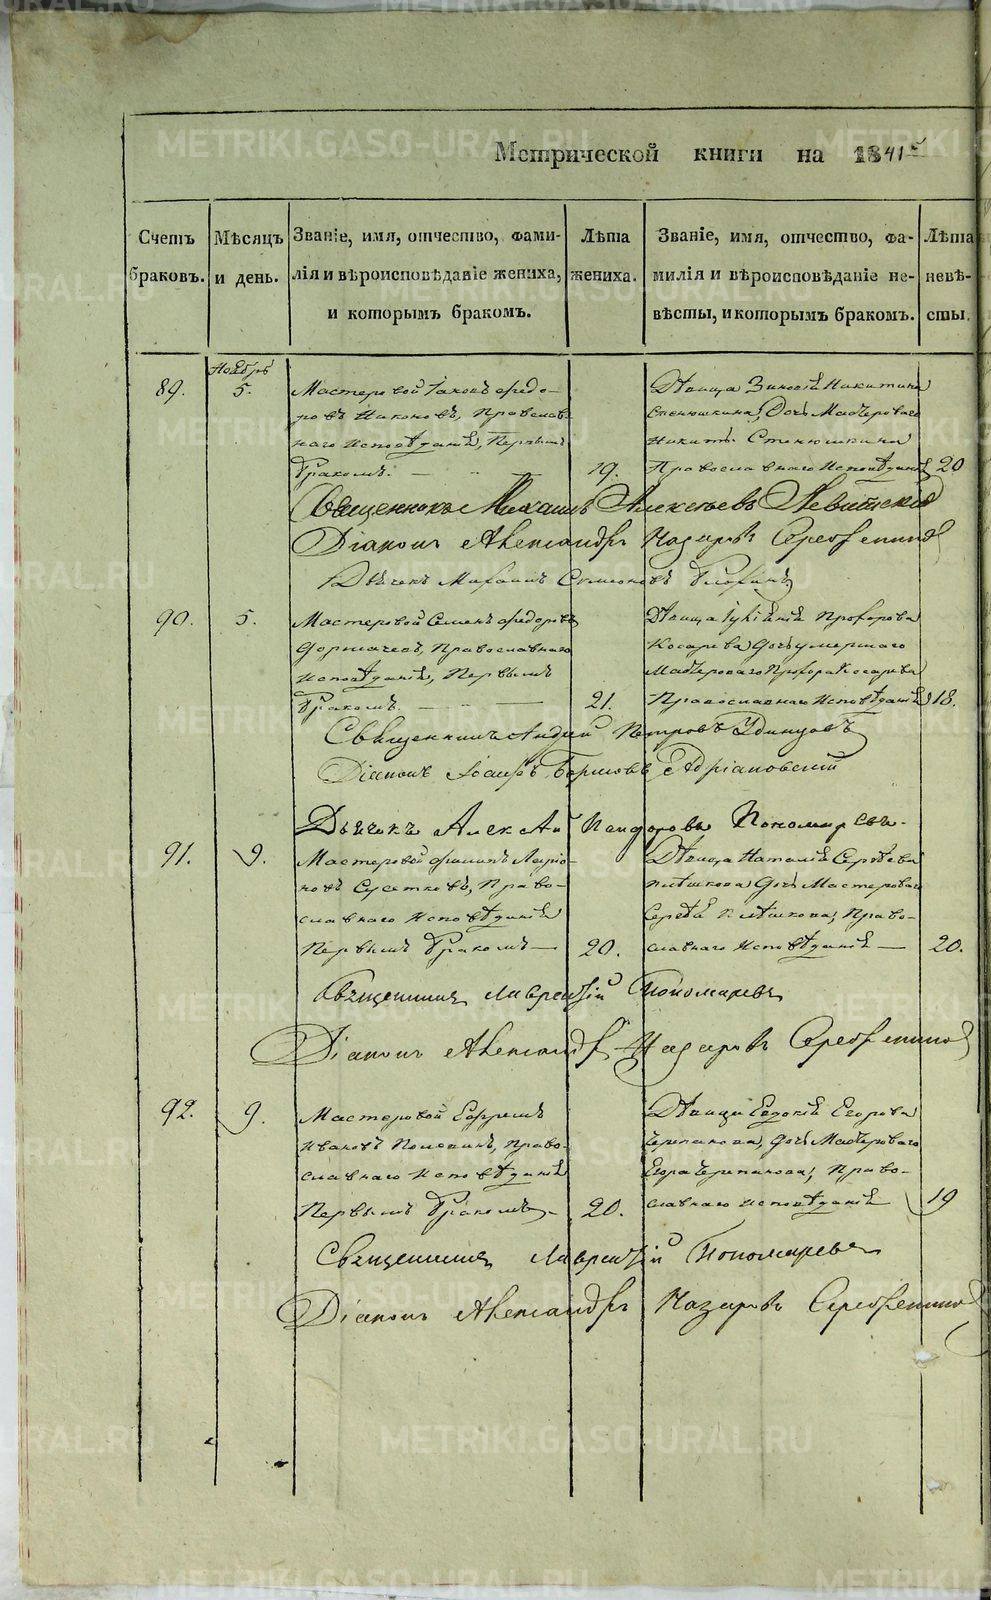 Метрической книги на 1841г
Счетъ браковъ.
Мѣсяцъ и день.
Званіе, имя, отчество, фами-
лія и вѣроисповѣданіе жениха,
и которымъ бракомъ.
Лѣта
жениха.
Званіе, имя, отчество, фа-
милія и вѣроисповѣданіе не-
вѣсты, и которымъ бракомъ.
Лѣта
невѣ-
сты.
Ноябрь
89. 5.
Мастеровой Іаковъ Федо-
ровъ Никоновъ, Православ-
наго Исповѣданія, Первымъ
Бракомъ. 19.
Дѣвица Зиновія Никитина
Стенюшкина, Дочь Мастероваго
Никиты Стенюшкина
Православнаго Исповѣданія 20
Священникъ Михаилъ Алексѣевъ Левитскій
Діаконъ Александръ Назаровъ Серебренников
Дьячекъ Михаилъ Симеоновъ
90. 5.
Мастеровой Семенъ Федоровъ
Православнаго
Исповѣданія, Первымъ
Бракомъ. 21.
Дѣвица Прохорова
Косарева Дочь умершаго
Мастероваго Прохора Косарева
Православнаго Исповѣданія 18.
Священникъ Андрей Петровъ Удинцовъ
Діаконъ Іоаннъ Адріановскій
Дьячекъ Алексѣй Пономаревъ.
91. 9.
Мастеровой Филипъ Ларіо-
новъ Сусетковъ, Право-
славнаго Исповѣданія
Первымъ Бракомъ 20.
Дѣвица Наталія Сергѣева
Плѣшкова Дочь Мастероваго
Сергѣя Плѣшкова, Право-
славнаго Исповѣданія 20.
Священникъ Лаврентій Пономаревъ
Діаконъ Александръ Назаровъ Серебренников
92. 9.
Мастеровой Ефремъ
Ивановъ Право-
славнаго Исповѣданія
Первымъ Бракомъ 20.
Дѣвица Евдокія Егорова
Черепанова, Дочь Мастероваго
Егора Черепанова, Право-
славнаго исповѣданія 19
Священникъ Лаврентій Пономаревъ
Діаконъ Александръ Назаровъ Серебренников
METRIKI.GASO-URAL.RU